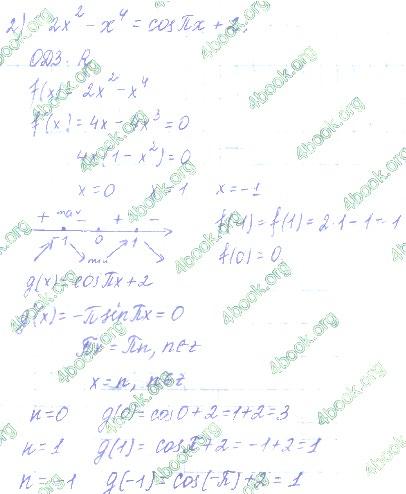 2) 2x² - x⁴ = cosπx + 2;
ОДЗ: R
f(x) = 2x² - x⁴
f'(x) = 4x - 4x³ = 0
4x(1 - x²) = 0
x = 0 x = 1 x = -1
+ max - + -
-1 0 1
min
f(-1) = f(1) = 2·1 - 1 = 1
f(0) = 0
g(x) = cosπx + 2
g'(x) = -π sinπx = 0
πx = πn, n∈z
x = n, n∈z
n = 0 g(0) = cos0 + 2 = 1 + 2 = 3
n = 1 g(1) = cosπ + 2 = -1 + 2 = 1
n = -1 g(-1) = cos(-π) + 2 = 1
4book.org